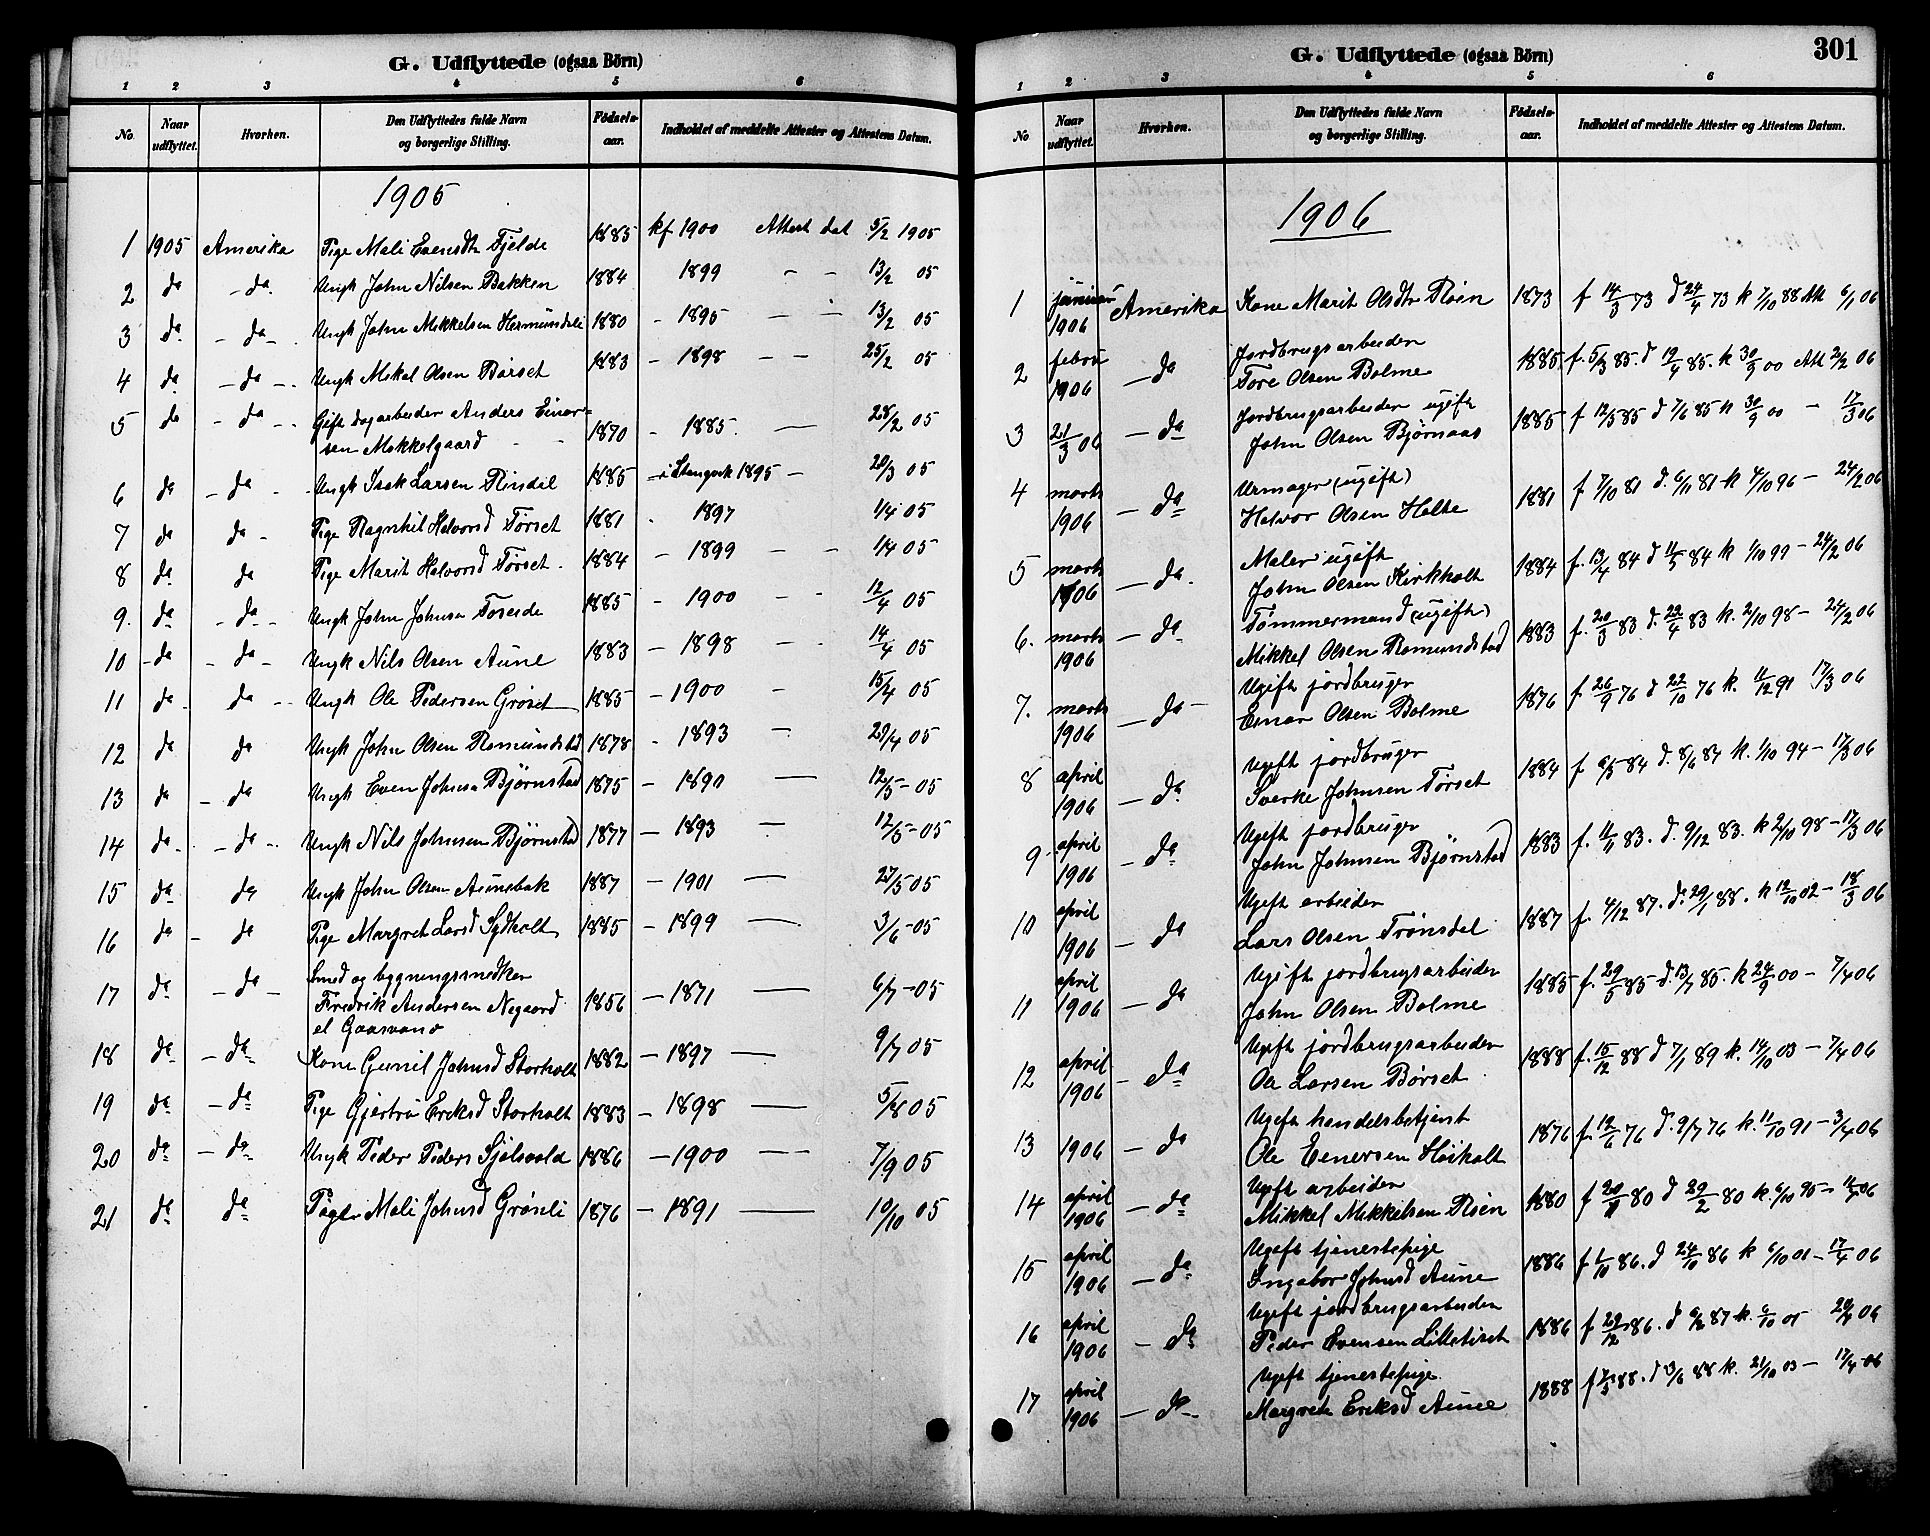 G. Udflyttede (ogsaa Börn)
1 2 3 4 5 6
No. Naar udflyttet. Hvorhen. Den Udflyttedes fulde Navn og borgerlige Stilling. Fødsels-aar. Indholdet af meddelte Attester og Attestens Datum.
1905
1 1905 Amerika Pige Mali Evensdtr Fjelde 1885 kf 1900 Attest dat 5/2 1905
2 do - do. Ungk John Nilsen Bakken 1884 1899 - - 13/2 05
3 do - do - Ungk John Mikkelsen Hermundsli 1880 - 1895 - - 13/2 05
4 do - do - Ungk Mikal Olsen Børset 1883 - 1898 - - 25/2 05
5 do - do - Gift dagarbeider Anders Einar-
sen Mokkelgaard 1870 - 1885 - 28/2 05
6 do - do - Ungk Isak Larsen Rindal 1885 - i Stangvik 1895 - 20/3 05
7 do do - Pige Ragnhil Halvorsd Tørset 1881 - 1897 1/4 05
8 do do Pige Marit Halvorsd Tørset 1884 - 1899 - - 1/4 05
9. do - do - Ungk John Johnsen Foseide 1885 - 1900 - - 12/4 05
10 - do - do - Ungk Nils Olsen Aune 1883 - 1898 - 14/4 05
11 do - do - Ungk Ole Pedersen Grøset 1885 - 1900 - 15/4 05
12 do do Ungk John Olsen Romundstad 1878 - 1893 - 29/4 05
13 do - do Ungk Even Johnsen Bjørnstad 1875 - 1890 - 12/5 - 05
14 do - do - Ungk Nils Johnsen Bjørnstad 1877 - 1893 - 12/5 - 05
15 do do Ungk John Olsen Aunebak 1887 - 1901 - 27/5 05
16 do - do Pige Margret Larsd Sydholt 1885 - 1899 - 3/6 - 05
17 do - do - Smed og bygningssnedker
Fredrik Andersen Negaard 1856 - 1871 - 6/7 - 05
el Gaasvand
18 do - do Kone Gunil Johnsd Storholt 1882 - 1897 - 9/7 05
19 do - do Pige Gjertru Eriksd Storholt 1883 - 1898 - 5/8 05
20 do - do Ungk Peder Peders Sjølsvold 1886 - 1900 - 7/9 05
21 do do Pige Mali Johnsd Grønli 1876 - 1891 - 10/10 05
G. Udflyttede (ogsaa Börn) 301
1 2 3 4 5 6
No Naar udflyttet. Hvorhen. Den Udflyttedes fulde Navn og borgerlige Stilling. Fødsels-aar. Indholdet af meddelte Attester og Attestens Datum.
1906
1 januar 1906 Amerika Kone Marit Olsdtr Røen 1873 f 14/3 73 d 24/4 73 k 7/10 88 Att 6/1 06
2 februar 1906 - do Jordbrugsarbeider
Tore Olsen Bolme 1885 f. 5/3 85. d 12/4 85. k 30/9 00 Att 2/2 06
3 21/3 06 - do Jordbrugsarbeider ugift
John Olsen Bjørnaas 1885 f 12/5 85 d 7/6 85 k 30/9 00 - 17/3 06
4 marts 1906 - do Urmager (ugift)
Halvor Olsen Holte 1881 f 7/10 81 d. 6/11 81 k 4/10 96 - 24/2 06
5 marts 1906 - do. Maler ugift
John Olsen Kirkholt 1884 f. 13/4 84 d 11/5 84 k 1/10 99 - 24/2 06
6. marts 1906 - do Tømmermand (ugift)
Mikkel Olsen Romundstad 1883 f. 20/3 83 d. 22/4 83 k. 2/10 98 - 24/2 06
7. marts 1906 - do - Ugift jordbruger
Einar Olsen Bolme 1876 f. 26/9 76 d 22/10 76 k. 11/12 91 17/3 06
8 april 1906 - do Ugift jordbruger
Sverke Johnsen Tørset 1884 f 6/5 84 d. 8/6 84 k. 1/10 94 - 17/3 06
9 april 1906 - do Ugift jordbruger
John Johnsen Bjørnstad 1883 f. 11/11 83. d. 9/12 83. k 2/10 98 - 17/3 06
10 april 1906 - do Ugift arbeider
Lars Olsen Trønsdal 1887 f. 4/12 87. d. 29/1 88. k 12/10 02 - 18/3 06
11 april 1906 - do Ugift jordbrugsarbeider
John Olsen Bolme 1885 f. 29/5 85 - d. 13/7 85. k 24/9 00 - 7/4 06
12 april 1906 - do Ugift jordbrugsarbeider
Ole Larsen Børset 1888 f. 15/12 88 d 7/1 89 k. 14/10 03 - 7/4 06
13 1906 - do Ugift handelsbetjent
Ole Einersen Høiholt 1876 f. 12/6 76 d. 9/7 76 k. 11/10 91 - 3/4 06
14 april 1906 - do Ugift arbeider
Mikkel Mikkelsen Røen 1880 f 20/1 80 d 29/2 80 k. 6/10 95 - 06
15 april 1906 - do Ugift tjenestepige
Ingebor Johnsd Aune 1886 f 1/10 86. d 24/10 86 k 6/10 01 - 17/4 06
16 april 1906 - do Ugift jordbrugsarbeider
Peder Evensen Litletiset 1886 f 29/12 86. d 6/2 87 k. 6/10 01 20/4 06
17 april 1906 - do - Ugift tjenestepige.
Margrete Eriksd Aune 1888 f 17/5 88. d 13/6 88 k. 21/10 03 - 17/4 06